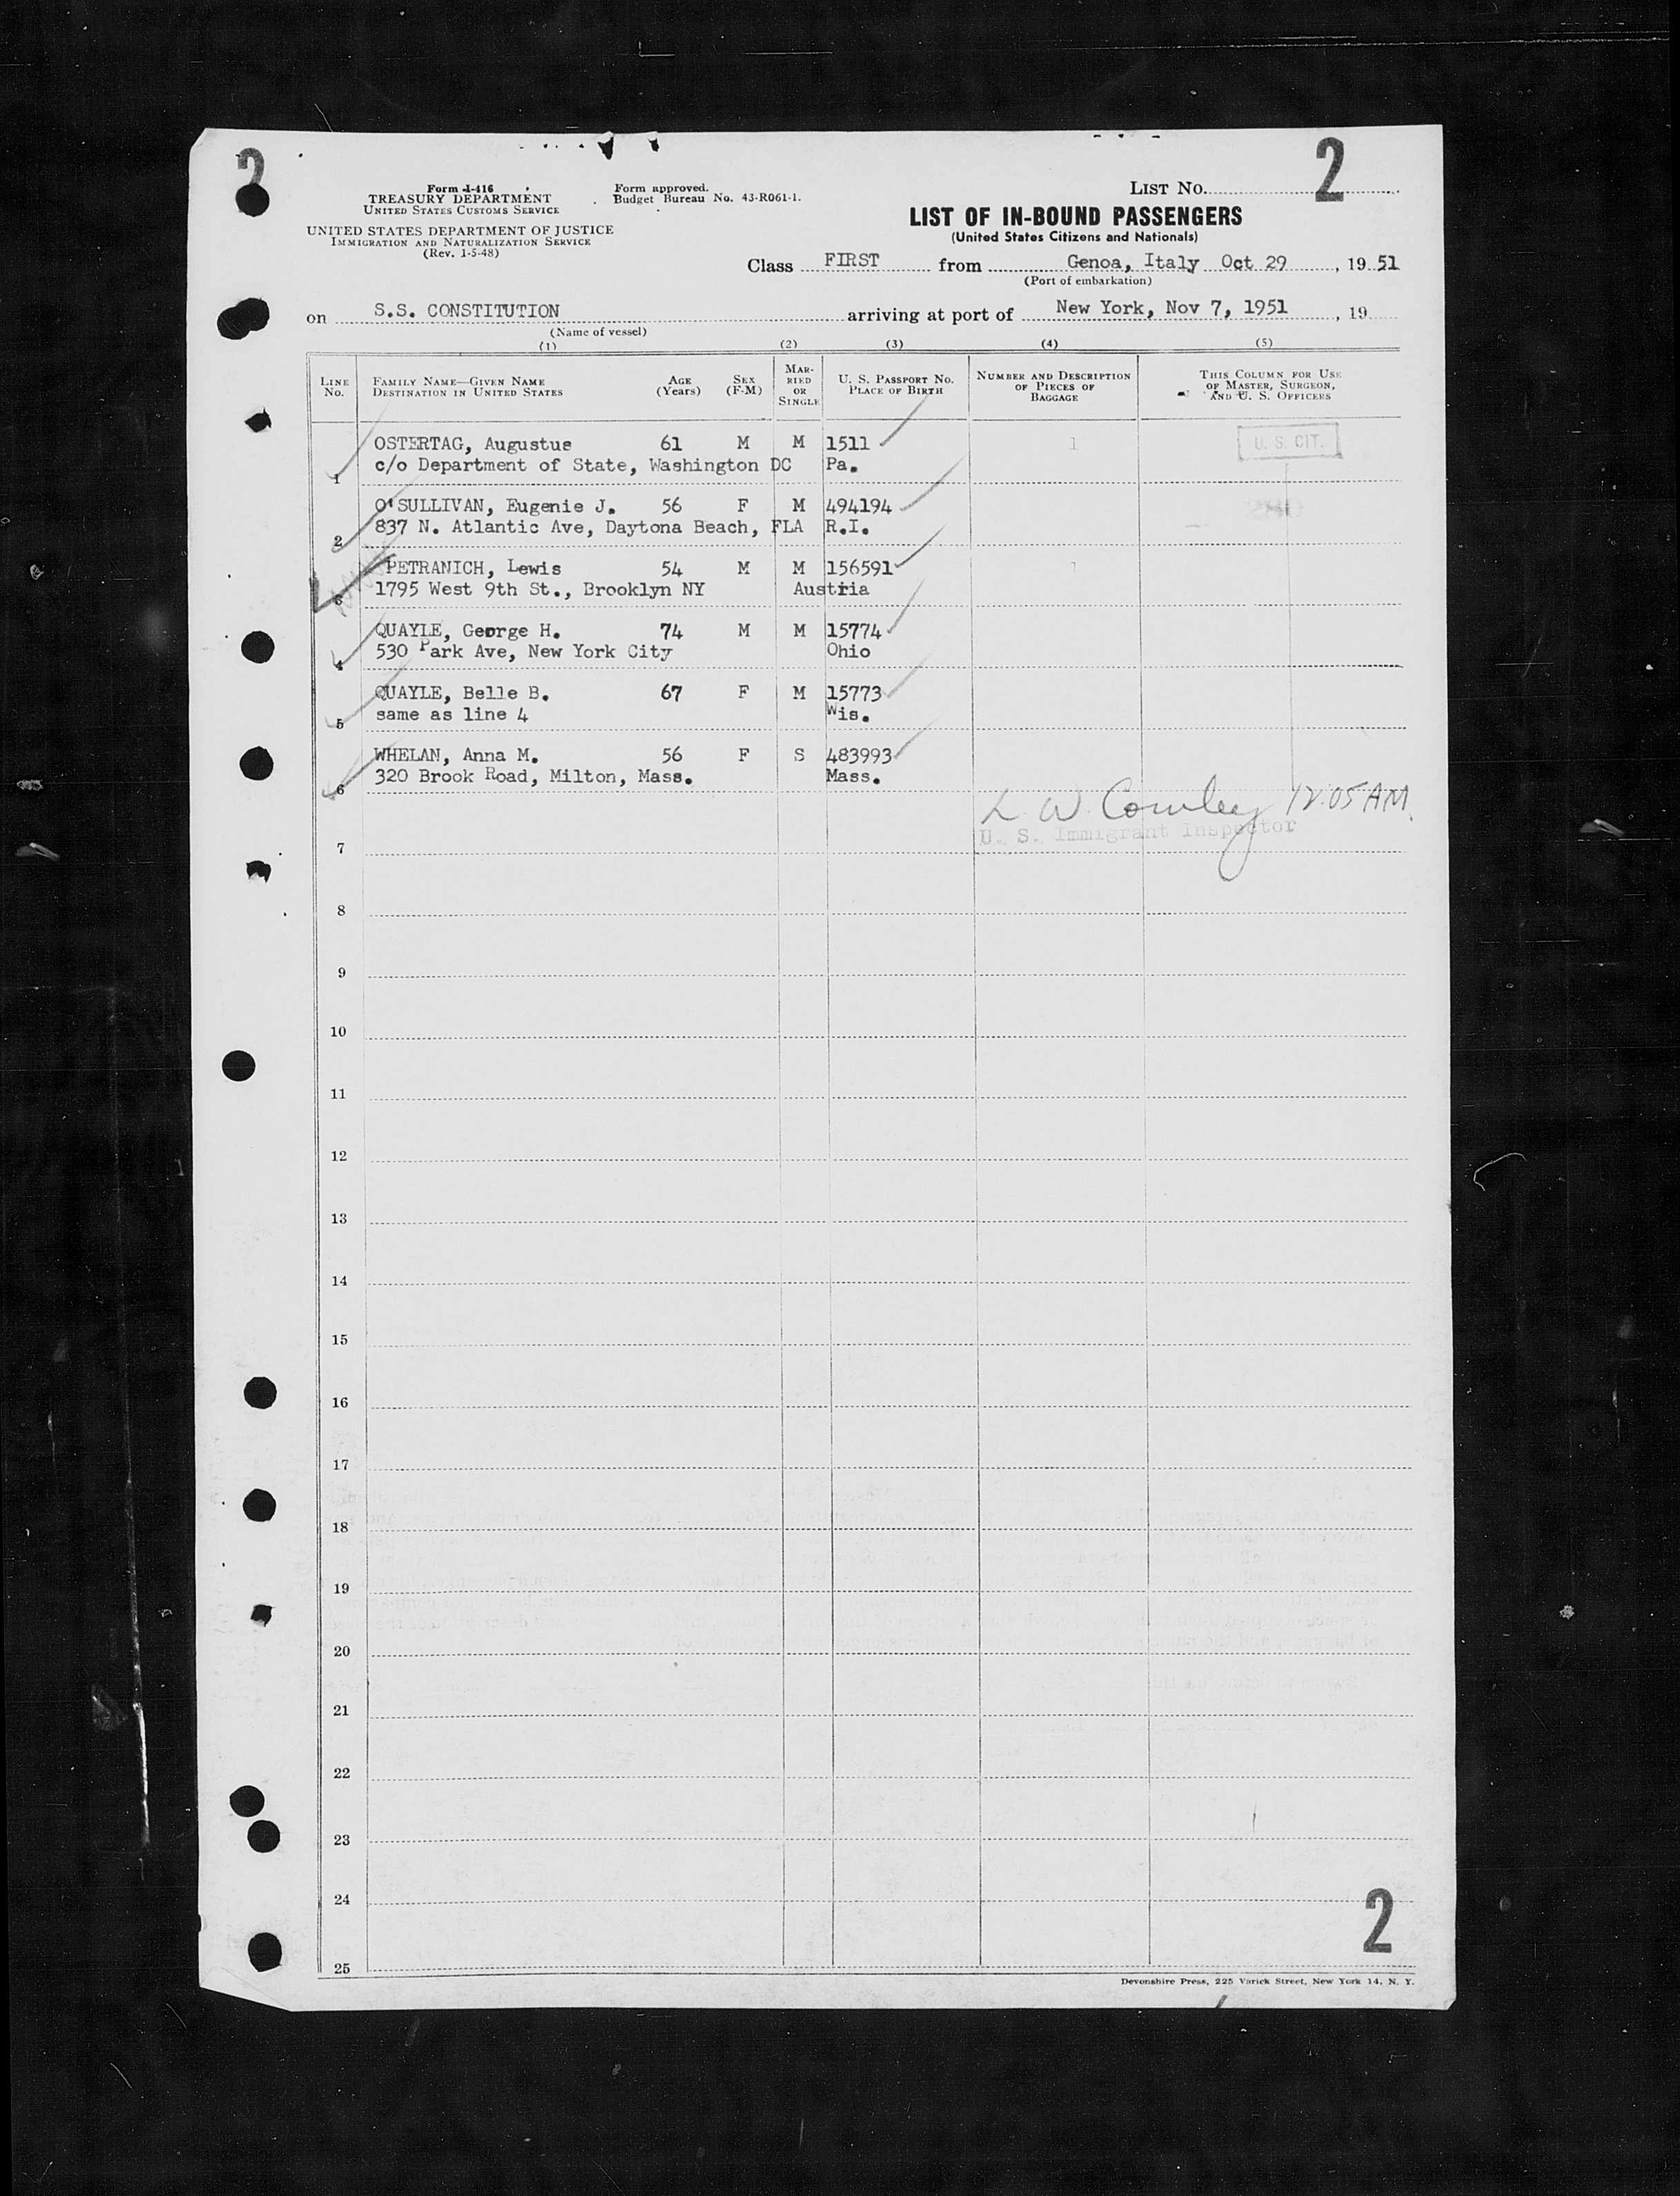 2
2
Form I-416
TREASURY DEPARTMENT
UNITED STATES CUSTOMS SERVICE
UNITED STATES DEPARTMENT OF JUSTICE
IMMIGRATION AND NATURALIZATION SERVICE
(Rev. 1-5-48)
Form approved.
Budget Bureau No. 43-R061-1.
LIST NO.
LIST OF IN-BOUND PASSENGERS
(United States Citizens and Nationals)
Class FIRST from Genoa, Italy Oct 29, 1951
(Port of embarkation)
on S.S. CONSTITUTION arriving at port of New York, Nov 7, 1951, 19
(Name of vessel)
(1) (2) (3) (4) (5)
LINE NO.
FAMILY NAME—GIVEN NAME
DESTINATION IN UNITED STATES
AGE (Years)
SEX (F-M)
MARRIED OR SINGLE
U. S. PASSPORT NO.
PLACE OF BIRTH
NUMBER AND DESCRIPTION OF PIECES OF BAGGAGE
THIS COLUMN FOR USE OF MASTER, SURGEON, AND U. S. OFFICERS
OSTERTAG, Augustus 61 M M 1511 1 U. S. CIT.
1 c/o Department of State, Washington DC Pa.
O'SULLIVAN, Eugenie J. 56 F M 494194
2 837 N. Atlantic Ave, Daytona Beach, FLA R.I.
PETRANICH, Lewis 54 M M 156591 1
3 1795 West 9th St., Brooklyn NY Austria
QUAYLE, George H. 74 M M 15774
4 530 Park Ave, New York City Ohio
QUAYLE, Belle B. 67 F M 15773
5 same as line 4 Wis.
WHELAN, Anna M. 56 F S 483993
6 320 Brook Road, Milton, Mass. Mass.
L. W. Cowley 12:05 AM.
U. S. Immigrant Inspector
7
8
9
10
11
12
13
14
15
16
17
18
19
20
21
22
23
24
25
2
Devonshire Press, 225 Varick Street, New York 14, N. Y.